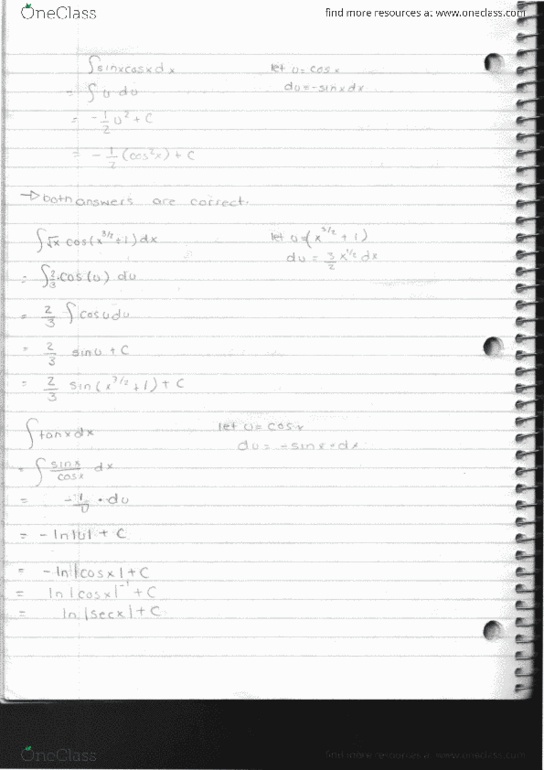 OneClass
find more resources at www.oneclass.com
∫sinxcosxdx let u=cosx
= ∫u du du=-sinxdx
= -1/2 u² + C
= -1/2 (cos²x) + C
→ both answers are correct.
∫√x cos(x^3/2+1)dx let u=(x^3/2+1)
du = 3/2 x^1/2 dx
= ∫2/3·cos(u) du
= 2/3 ∫cosudu
= 2/3 sinu + C
= 2/3 sin(x^3/2+1) + C
∫tanxdx let u=cosx
du = -sinx·dx
= ∫sinx/cosx dx
= -1/u · du
= -ln|u| + C
= -ln|cosx| + C
= ln|cosx|^-1 + C
= ln|secx| + C
OneClass
find more resources at www.oneclass.com